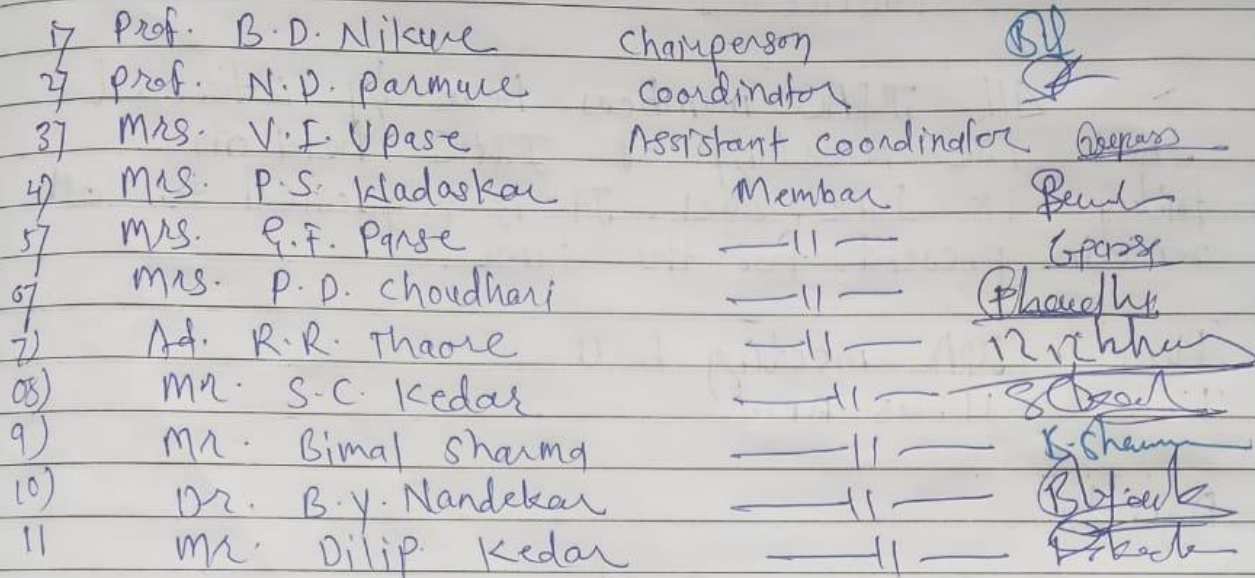 1) Prof. B.D. Nikure Chairperson
2) Prof. N.D. Parmure Coordinator
3) Mrs. V.I. Upase Assistant coordinator
4) Mrs. P.S. Wadaskar Membar
5) Mrs. G.F. Parse —11— Gparse
6) Mrs. P.D. Choudhari —11—
7) Ad. R.R. Thaore —11—
08) Mr. S.C. Kedar —11—
9) Mr. Bimal Sharma —11—
10) Dr. B.Y. Nandekar —11—
11 Mr. Dilip. Kedar —11—